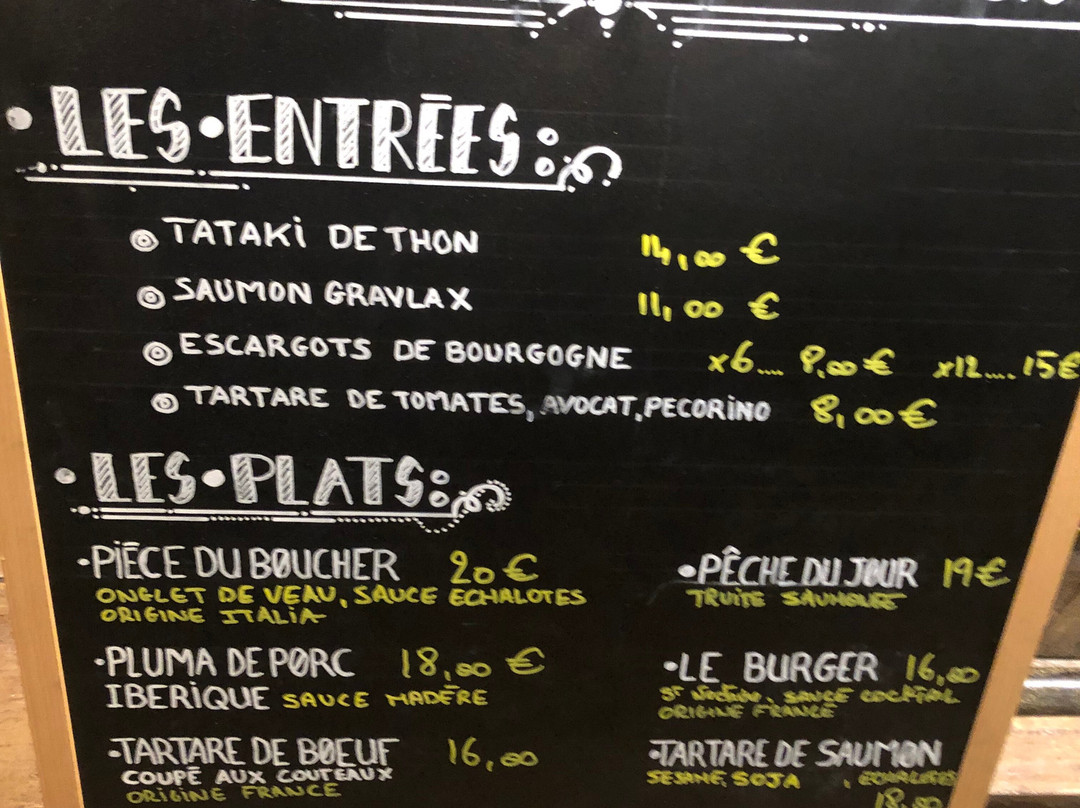 LES • ENTRĒES :
TATAKi DE THON 14,00 €
SAUMON GRAVLAX 11,00 €
ESCARGOTS DE BOURGOGNE x6.... 8,00 € x12.... 15€
TARTARE DE TOMATES, AVOCAT, PECORiNO 8,00 €
LES • PLATS :
• PIĒCE DU BOUCHER 20 €
ONGLET DE VEAU, SAUCE ECHALOTES
ORIGINE ITALIA
• PLUMA DE PORC 18,00 €
IBERIQUE SAUCE MADĒRE
• TARTARE DE BOEUF 16,00
COUPĒ AUX COUTEAUX
ORIGINE FRANCE
• PÊCHE DU JOUR 19€
TRUITE
• LE BURGER 16,00
ST SAUCE COCKTAIL
ORIGINE FRANCE
• TARTARE DE SAUMON
SESAME, SOJA , ECHALOTES
18,00